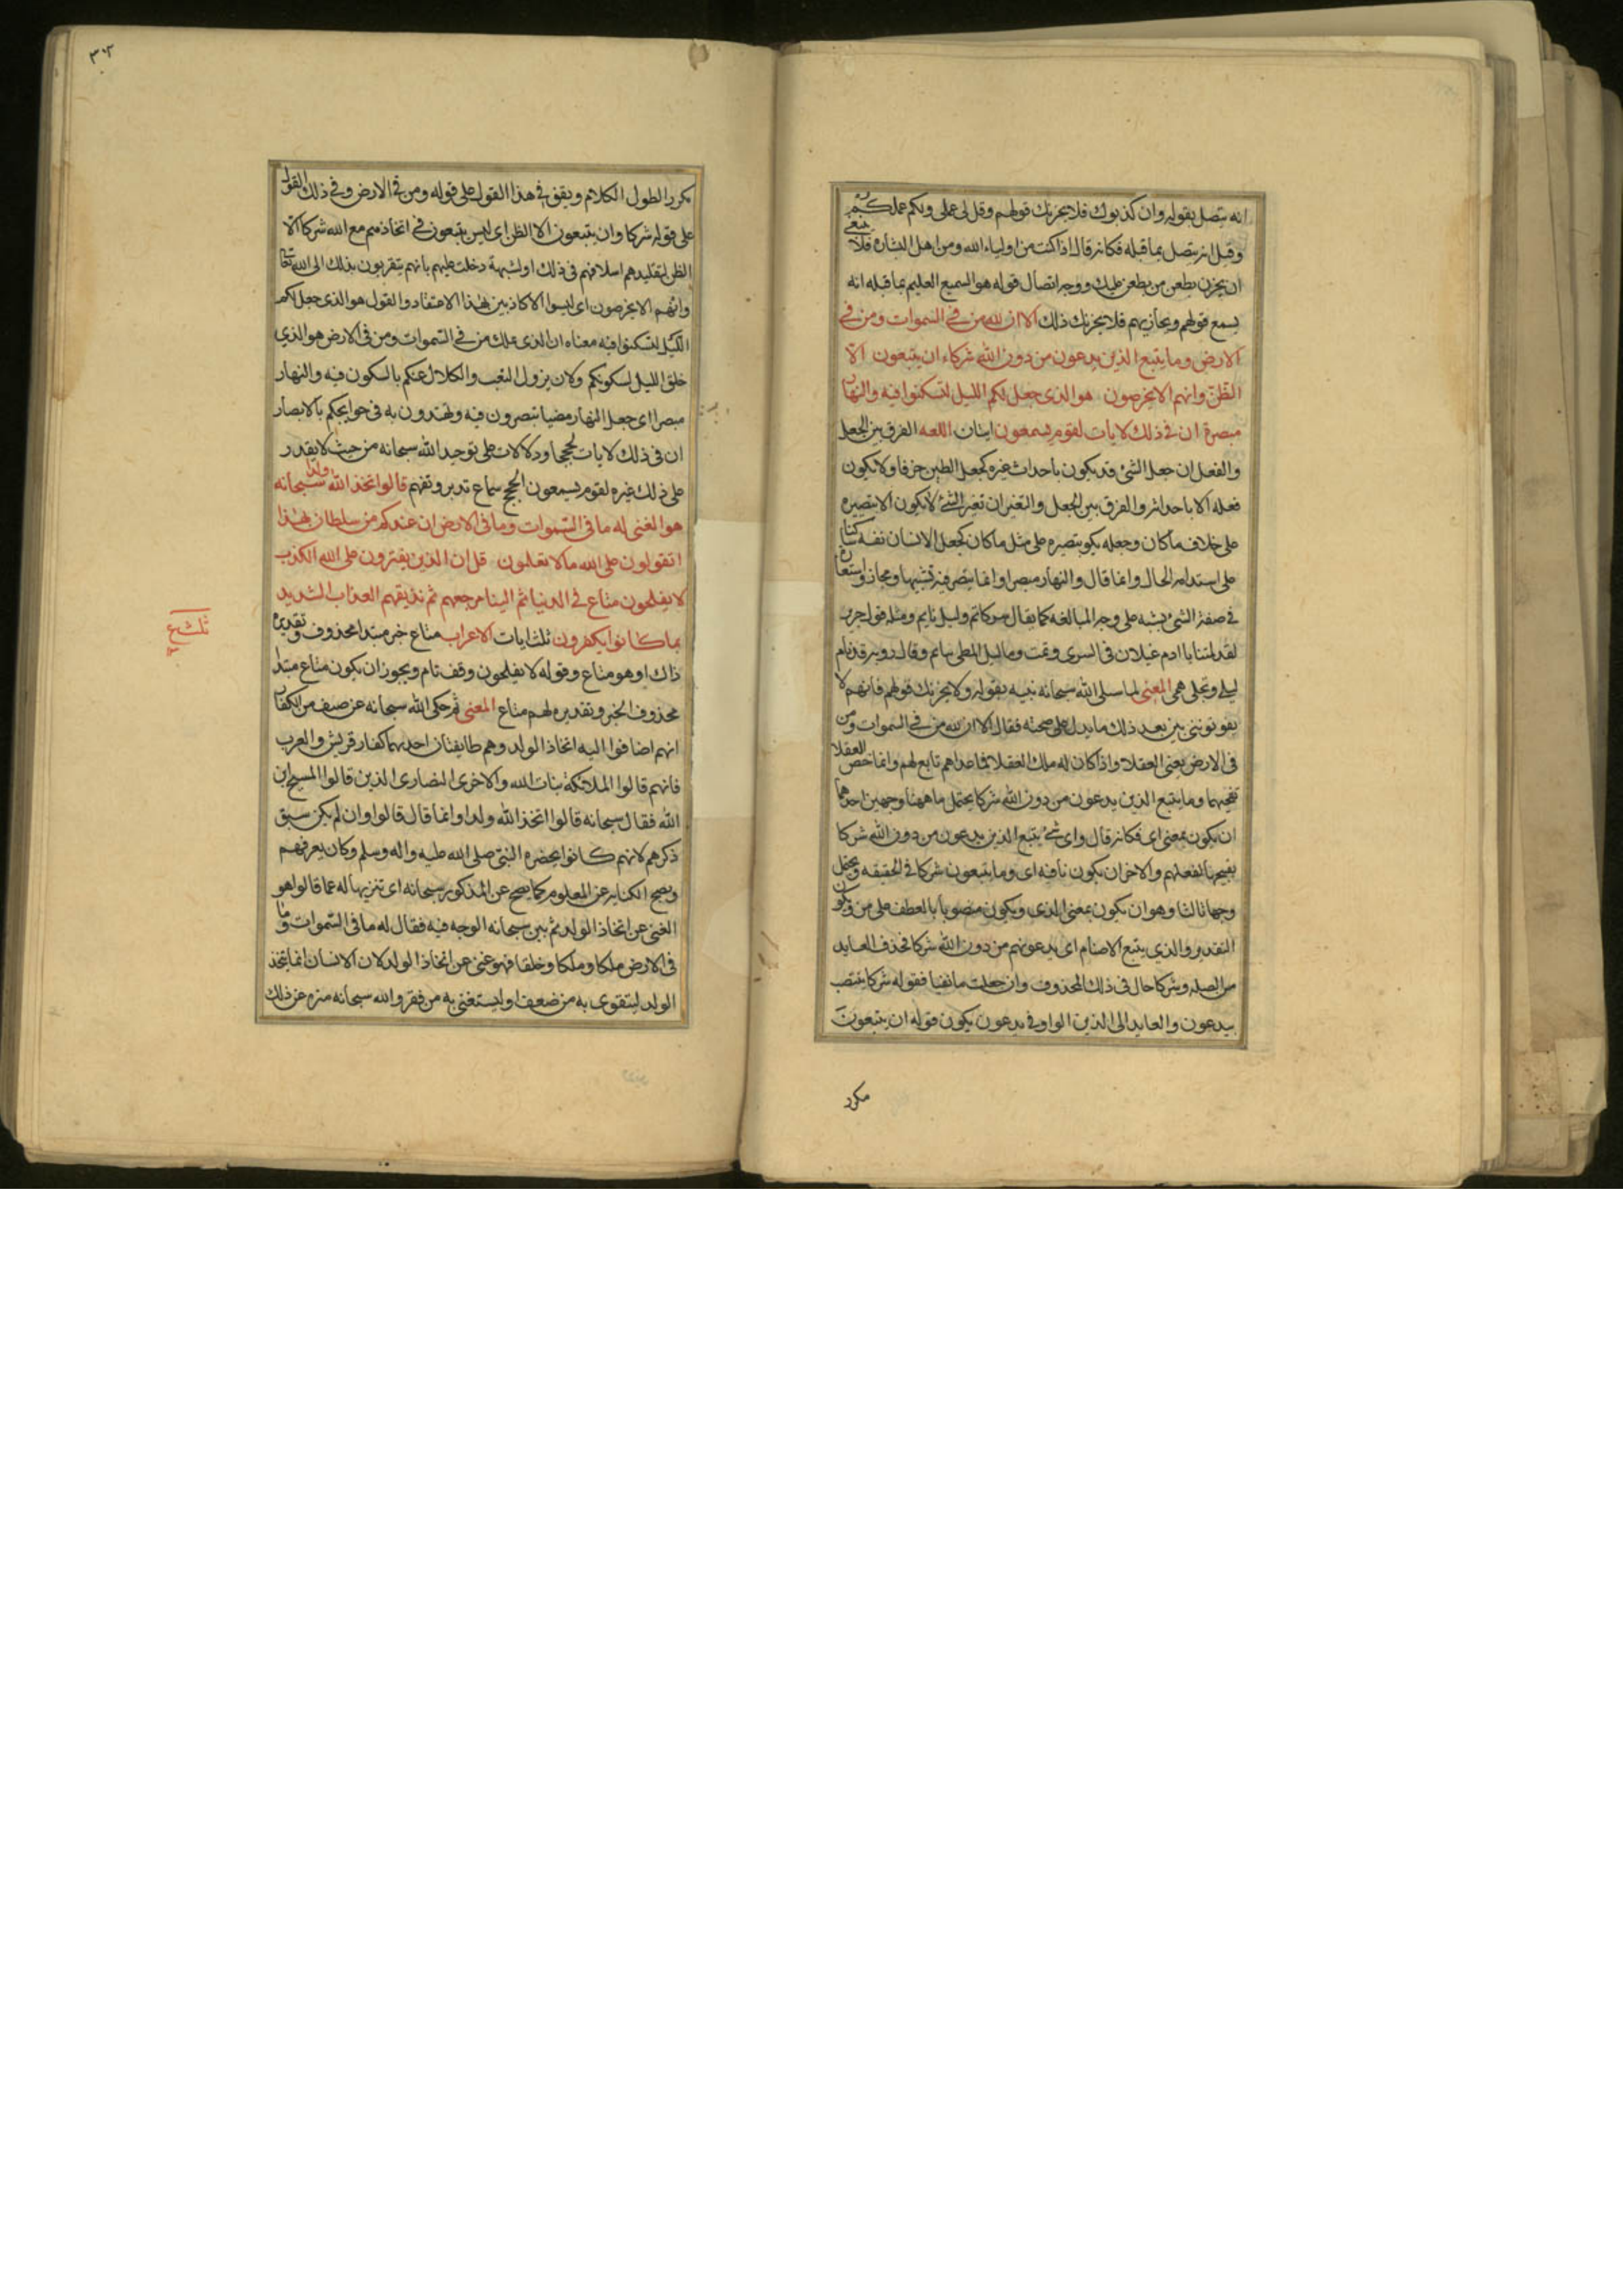 انه يتصل بقوله وان كذبوك فلا يحزنك قولهم وقل لى عملى ولكم عملكم
وقيل انه يتصل بما قبله فكانه قال اذا كنت من اولياء الله ومن اهل البشارة فلا ينبغى
ان يحزن بطعن من يطعن عليك ووجه اتصال قوله هو السميع العليم بما قبله انه
يسمع قولهم ويجازيهم فلا يحزنك ذلك الا ان لله من فى السموات ومن فى
الارض وما يتبع الذين يدعون من دون الله شركاء ان يتبعون الا
الظن وانهم الا يخرصون هو الذى جعل لكم الليل لتسكنوا فيه والنهار
مبصرة ان فى ذلك لايات لقوم يسمعون ايتان اللغه الفرق بين الجعل
والفعل ان جعل الشئ قد يكون باحداث غيره كجعل الطين خزفا ولا يكون
فعله الا باحداثه والفرق بين الجعل والتغير ان تغير الشئ لا يكون الا بتصيره
على خلاف ما كان وجعله يكو بتصيره على مثل ما كان كجعل الانسان نفسه ساكنا
على استدامه الحال وانما قال والنهار مبصرا وانما يبصر فيه تشبيها ومجازا واستعارة
فى صفة الشئ بشبه على وجه المبالغه كما يقال سر كاتم وليل نايم ومثله قول جرير
لقد لمتنا يا ادم غيلان فى السرى ونمت وما ليل المطى بنايم وقال روبه قد نام
ليلى وتجلى همى المعنى لما سلى الله سبحانه نبيه بقوله ولا يحزنك قولهم فانهم لا
يفوتوننى بين بعد ذلك ما يدل على صحته فقال الا ان لله من فى السموات ومن
فى الارض يعنى العقلا واذا كان له ملك العقلا فما عداهم تابع لهم وانما خص العقلا
تفخيما وما يتبع الذين يدعون من دون الله شركا يحتمل ما ههنا وجهين احدهما
ان يكون بمعنى اى فكانه قال واى شئ يتبع الذين يدعون من دون الله شركا
تقبيحا لفعلهم والاخر ان يكون نافيه اى وما يتبعون شركا فى الحقيقه ويحتمل
وجها ثالثا وهو ان يكون بمعنى الذى ويكون منصوبا بالعطف على من ويكون
التقدير والذى يتبع الاصنام اى يدعونهم من دون الله شركا فحذف العايد
من الصله وشركا حال فى ذلك المحذوف وان جعلت ما نفيا فقوله شركا ينتصب
بيدعون والعايد الى الذين الواو فى يدعون يكون قوله ان يتبعون
مكرر
٣٠٢
مكررا لطول الكلام ويقف فى هذا القول على قوله ومن فى الارض وفى ذلك القول
على قوله شركا وان يتبعون الا الظن اى ليس يتبعون فى اتخاذهم مع الله شركا الا
الظن لتقليدهم اسلافهم فى ذلك او لشبهة دخلت عليهم بانهم يتقربون بذلك الى الله تعالى
وان هم الا يخرصون اى ليسوا الا كاذبين بهذا الاعتقاد والقول هو الذى جعل لكم
الليل لتسكنوا فيه معناه ان الذى يملك من فى السموات ومن فى الارض هو الذي
خلق الليل لسكونكم ولان يزول التعب والكلال عنكم بالسكون فيه والنهار
مبصرا اى جعل النهار مضيا تبصرون فيه وتهتدون به فى حوايجكم بالابصار
ان فى ذلك لايات لحججا ودلالات على توحيد الله سبحانه من حيث لا يقدر
على ذلك غيره لقوم يسمعون الحجج سماع تدبر وتفهم قالوا اتخذ الله ولدا سبحانه
هو الغنى له ما فى السموات وما فى الارض ان عندكم من سلطان بهذا
اتقولون على الله ما لا تعلمون قل ان الذين يفترون على الله الكذب
لا يفلحون متاع فى الدنيا ثم الينا مرجعهم ثم نذيقهم العذاب الشديد
بما كانوا يكفرون ثلث ايات الاعراب متاع خبر مبتدا محذوف وتقديره
ذاك او هو متاع وقوله لا يفلحون وقف تام ويجوز ان يكون متاع مبتدا
محذوف الخبر وتقديره لهم متاع المعنى ثم حكى الله سبحانه عن صنف من الكفار
انهم اضافوا اليه اتخاذ الولد وهم طايفتان احديهما كفار قريش والعرب
فانهم قالوا الملائكة بنات الله والاخرى النصارى الذين قالوا المسيح ابن
الله فقال سبحانه قالوا اتخذ الله ولدا وانما قال قالوا وان لم يكن سبق
ذكرهم لانهم كانوا بحضرة النبى صلى الله عليه واله وسلم وكان يعرفهم
ويصح الكنايه عن المعلوم كما يصح عن المذكور سبحانه اى تنزيها له عما قالوا هو
الغنى عن اتخاذ الولد ثم بين سبحانه الوجه فيه فقال له ما فى السموات وما
فى الارض ملكا وملكا وخلقا فهو غنى عن اتخاذ الولد لان الانسان انما يتخذ
الولد ليتقوى به من ضعف او ليستغنى به من فقر والله سبحانه منزه عن ذلك